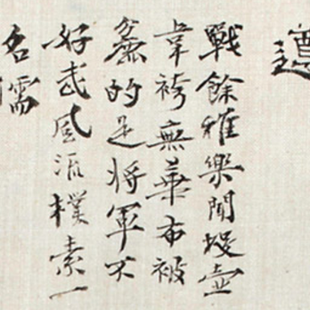 遵
戰餘雅樂閒投壺
韋袴無華布被
麄的是將軍不
好武風流樸素一
名儒